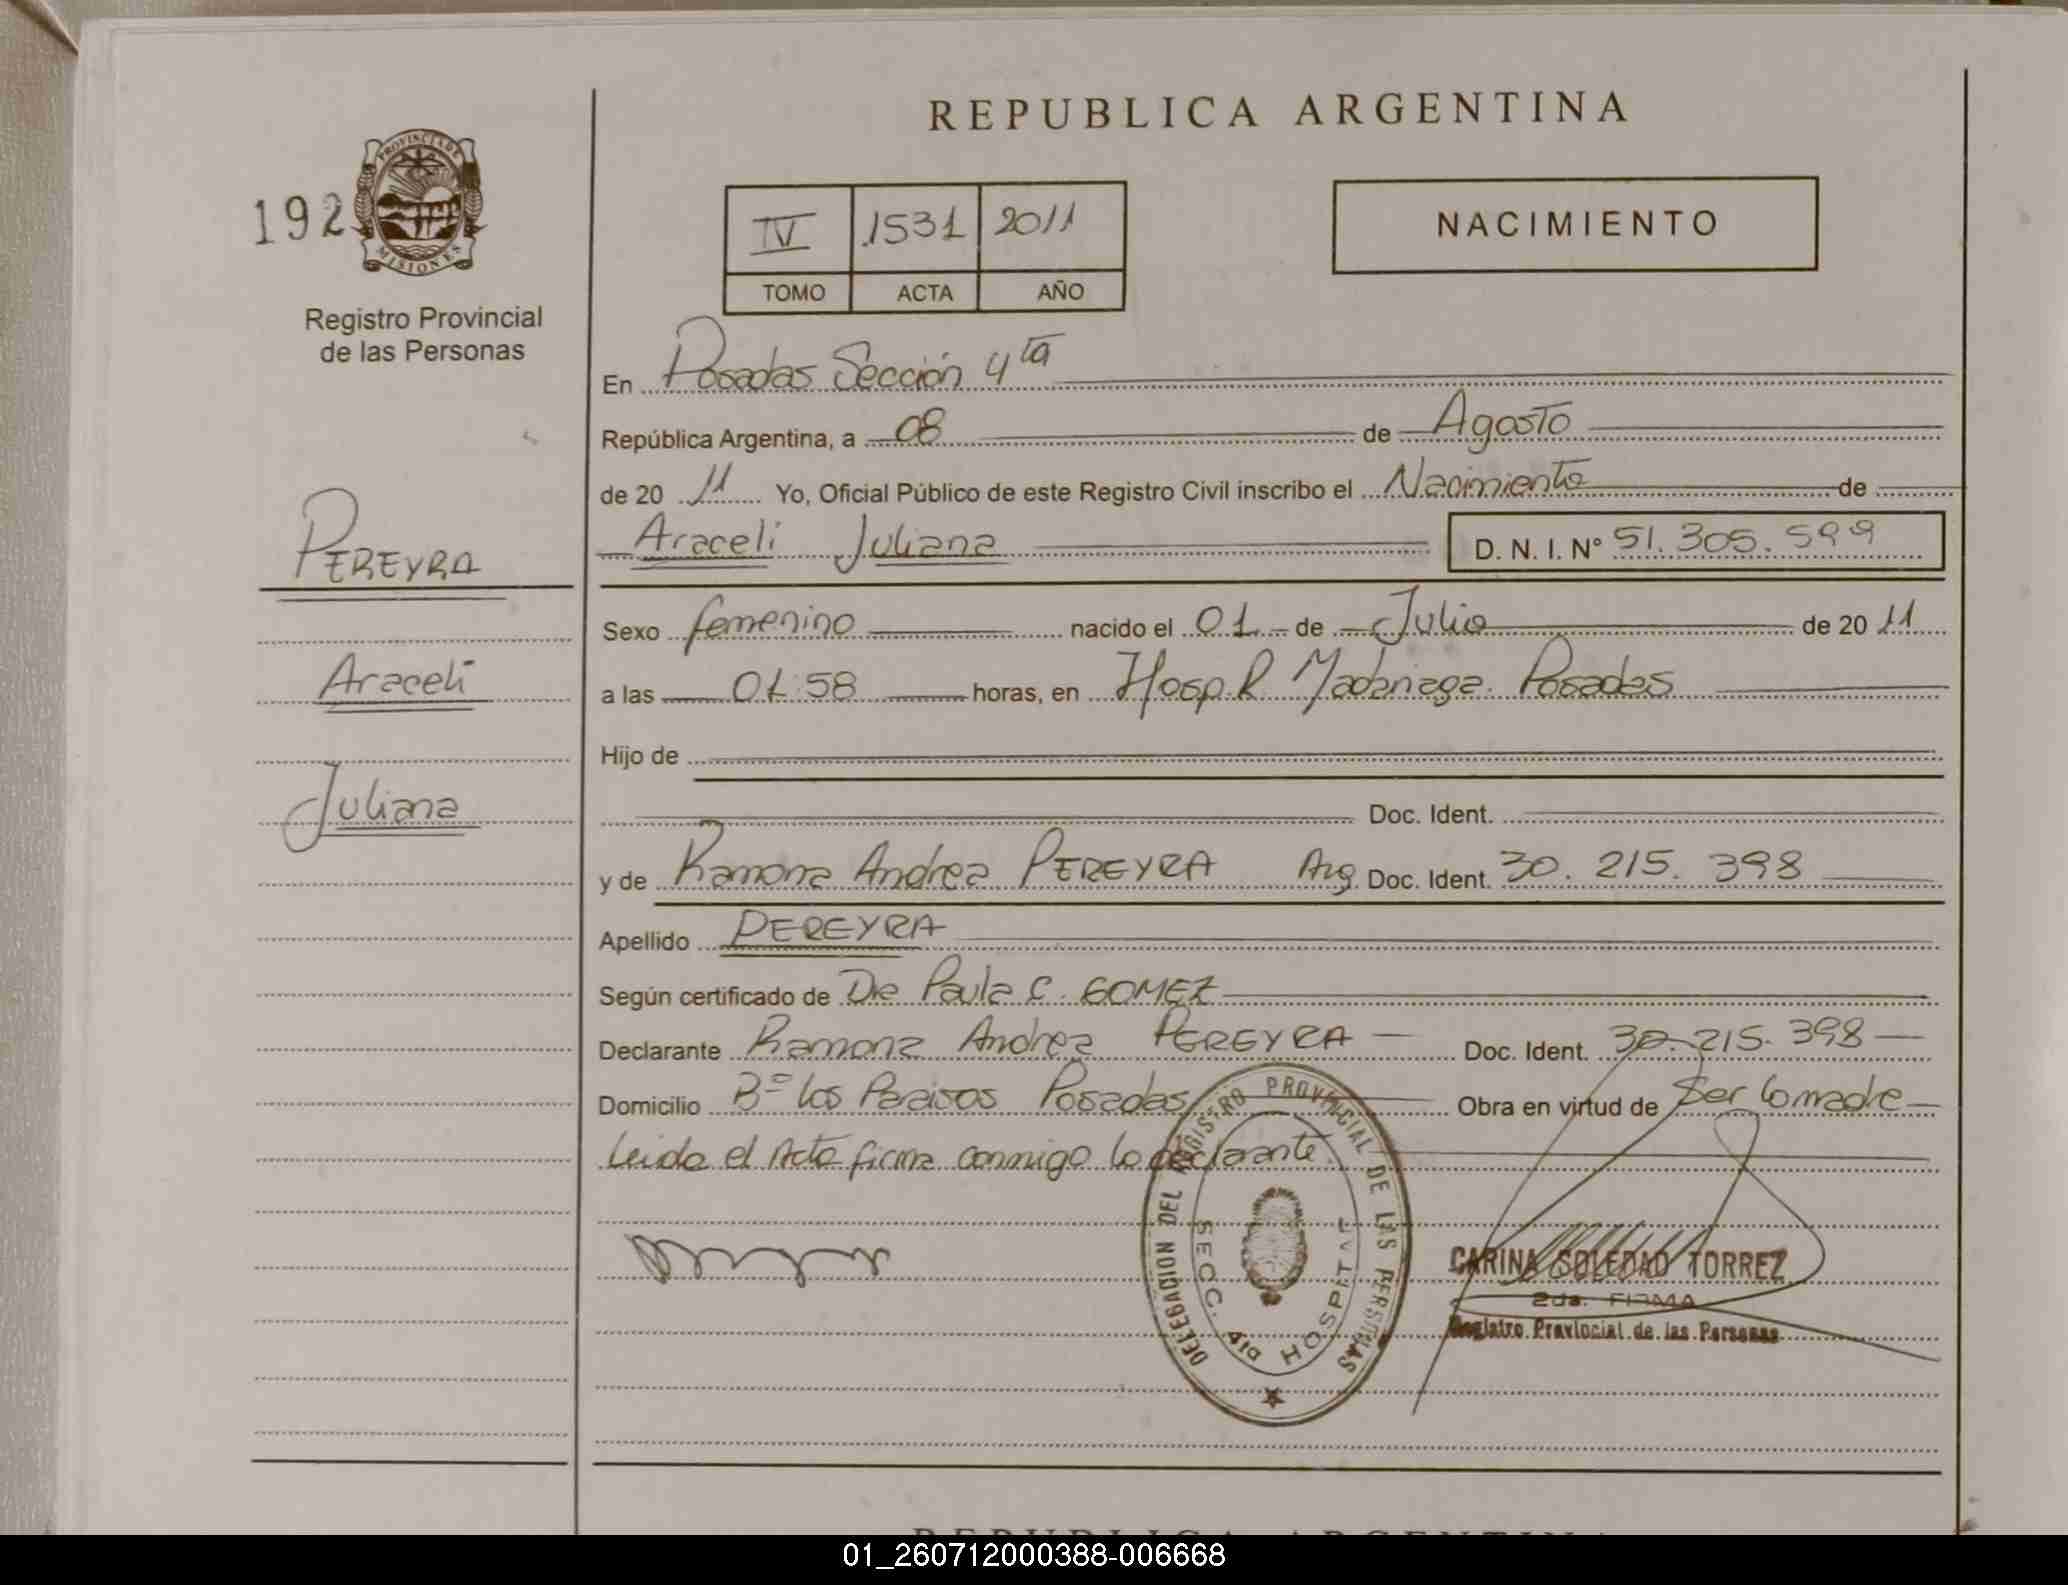 REPUBLICA ARGENTINA
192
PROVINCIA DE
MISIONES
Registro Provincial
de las Personas
IV 1531 2011
TOMO ACTA AÑO
NACIMIENTO
En Posadas Sección 4ta
República Argentina, a 08 de Agosto
de 20 11 Yo, Oficial Público de este Registro Civil inscribo el Nacimiento de
Araceli Juliana D. N. I. N° 51.305.599
PEREYRA
Araceli
Juliana
Sexo femenino nacido el 01 de Julio de 20 11
a las 01:58 horas, en Hosp. R. Madariaga. Posadas
Hijo de
Doc. Ident.
y de Ramona Andrea PEREYRA Arg. Doc. Ident. 30. 215. 398
Apellido PEREYRA
Según certificado de Dra Paula C. GOMEZ
Declarante Ramona Andrea PEREYRA Doc. Ident. 30.215.398
Domicilio Bº los Paraisos Posadas Obra en virtud de Ser la madre
Leida el Acta firma conmigo la declarante
DELEGACION DEL REGISTRO PROVINCIAL DE LAS PERSONAS
SECC. 4ta HOSPITAL
CARINA SOLEDAD TORREZ
2da. FIRMA
Registro Provincial de las Personas
REPUBLICA ARGENTINA
01_260712000388-006668